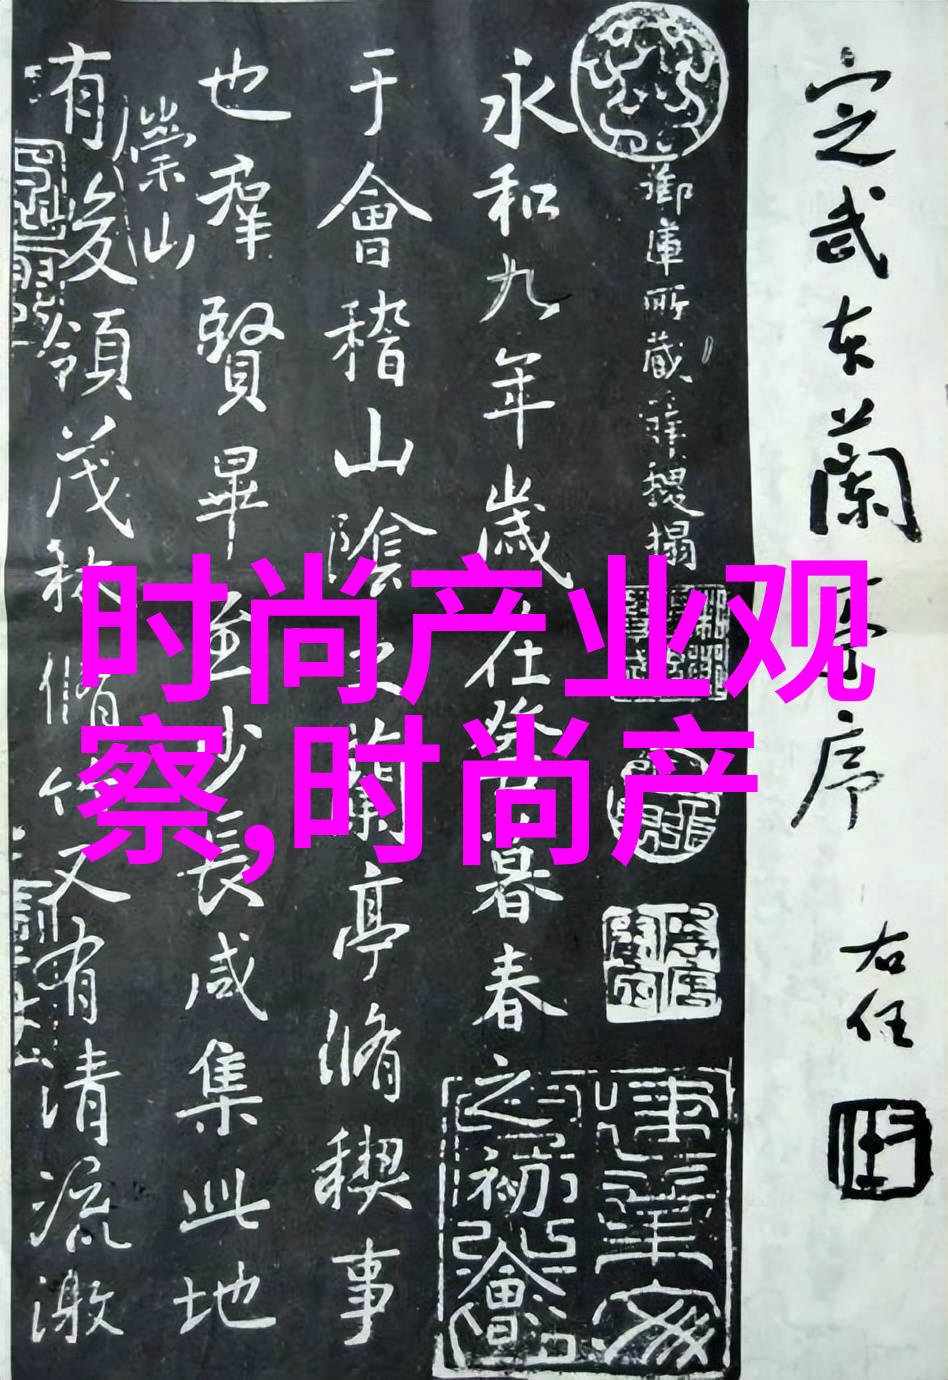 定武本蘭亭序
右任
御庫所藏
永和九年歲在癸丑暮春之初會
于會稽山陰之蘭亭脩稧事
也群賢畢至少長咸集此地
崇山
有峻領茂林脩竹又有清流激
时尚产业观
察,时尚产